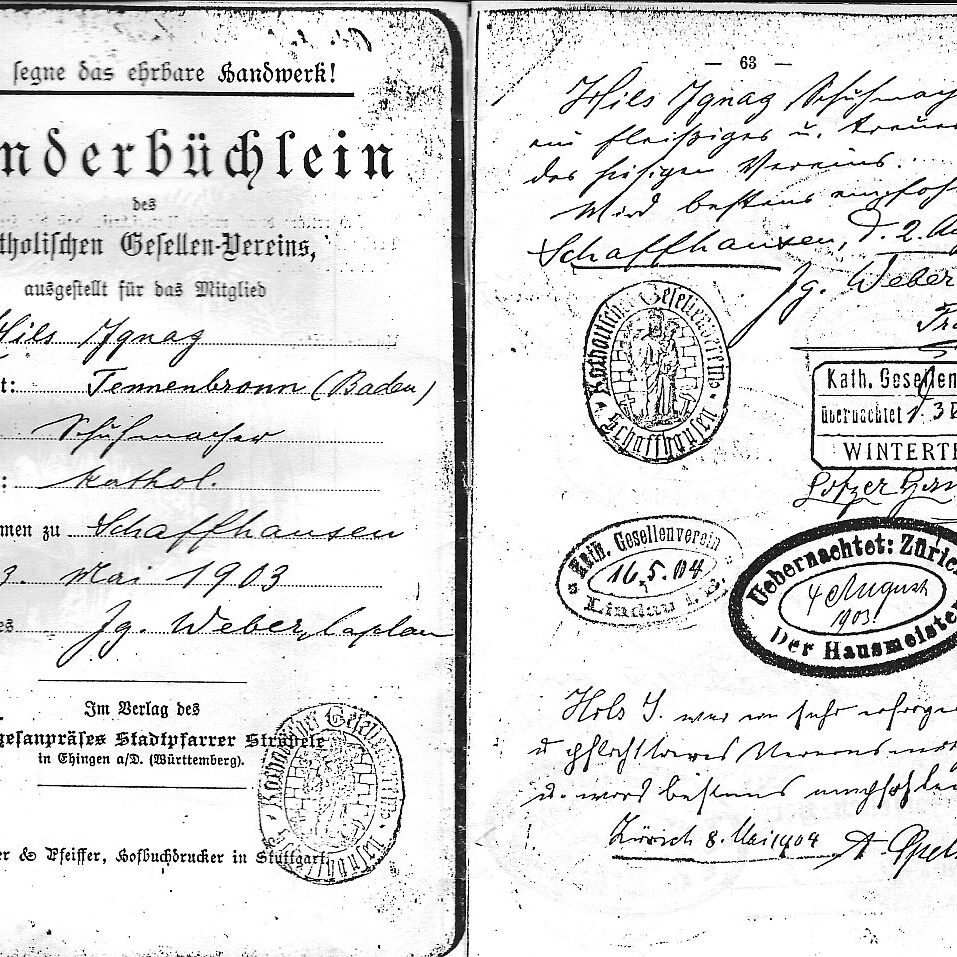 segne das ehrbare Handwerk!
nderbüchlein
des
tholischen Gesellen-Vereins,
ausgestellt für das Mitglied
Hils Ignaz
t: Tennenbronn (Baden)
Schuhmacher
: kathol.
men zu Schaffhausen
3. Mai 1903
es Jg. Weber, Caplan
Im Verlag des
gesanpräses Stadtpfarrer Ströbele
in Ehingen a/D. (Württemberg).
er & Pfeiffer, Hofbuchdrucker in Stuttgart.
Katholischer Gesellenverein
Schaffhausen
— 63 —
Hils Ignaz Schuhmach
ein fleißiges u. treues
des hiesigen Vereins.
Wird bestens empfohl
Schaffhausen, d. 2. Au
Jg. Weber
Katholischer Gesellenverein
Schaffhausen
Kath. Gesellen
übernachtet
WINTERTH
Kath. Gesellenverein
16.5.04
Lindau i. B.
Uebernachtet: Züric
4 August
1903.
Der Hausmeiste
war ein sehr
u. pflichttreues Vereins
u. wird bestens empfohlen
Zürich 8. Mai 1904